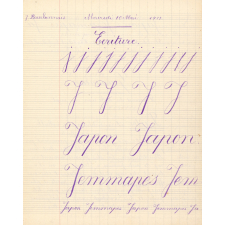 Mercredi 10 Mai
Ecriture.
i i i i i i i i i i
J J J J J
Japon Japon
Jemmapes Jem
Japon Jemmapes Japon Jemmapes Ja